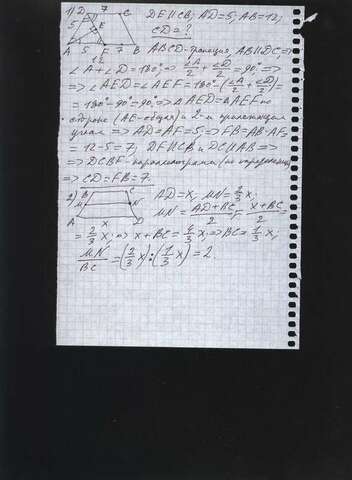 1) D 7 C DE||CB; AD=5; AB=12;
5 E CD=?
A 5 F 7 B ABCD-трапеция, AB||DC=>
12
∠A+∠D=180°=> ∠A/2+∠D/2=90°=>
=>∠AED=∠AEF=180°-(∠A/2+∠D/2)=
=180°-90°=90°=>△AED=△AEF по
стороне (AE-общая) и 2м прилежащим
углам => AD=AF=5; => FB=AB-AF=
12-5=7; DF||CB и DC||AB=>
=> DCBF-параллелограмм (по определению)
=> CD=FB=7.
2) B C AD=x, MN=2/3 x;
M N MN=(AD+BC)/2=(x+BC)/2=
A x D
=2/3 x; => x+BC=4/3 x; => BC=1/3 x;
MN/BC=(2/3 x):(1/3 x)=2.